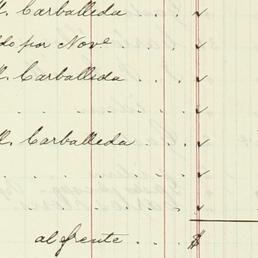 M. Carballeda . . . ✓
do por Nove ✓
M. Carballeda . . . ✓
. . . . ✓
M. Carballeda . . . ✓
. . . . ✓
. . . . ✓
al frente . . . $